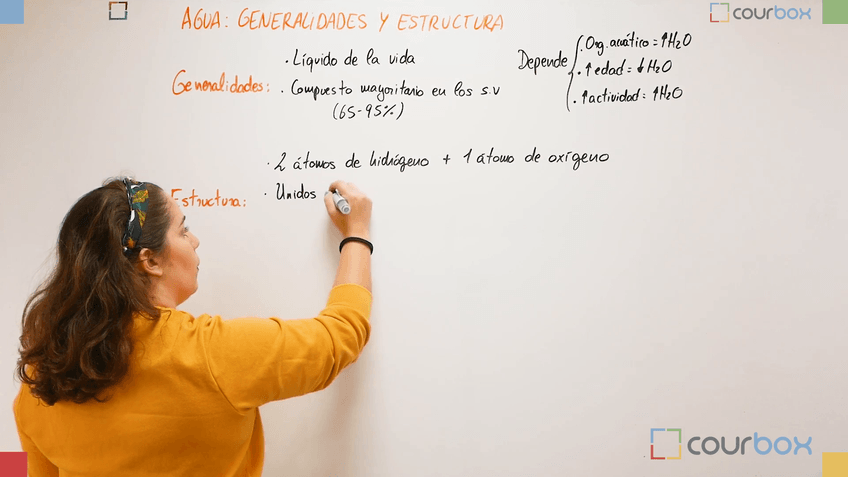 AGUA: GENERALIDADES Y ESTRUCTURA
courbox
Generalidades:
· Líquido de la vida
· Compuesto mayoritario en los s.v
(65-95%)
Depende
· Org. acuático = ↑H2O
· ↑ edad = ↓ H2O
· ↑ actividad = ↑H2O
Estructura:
· 2 átomos de hidrógeno + 1 átomo de oxígeno
· Unidos
courbox